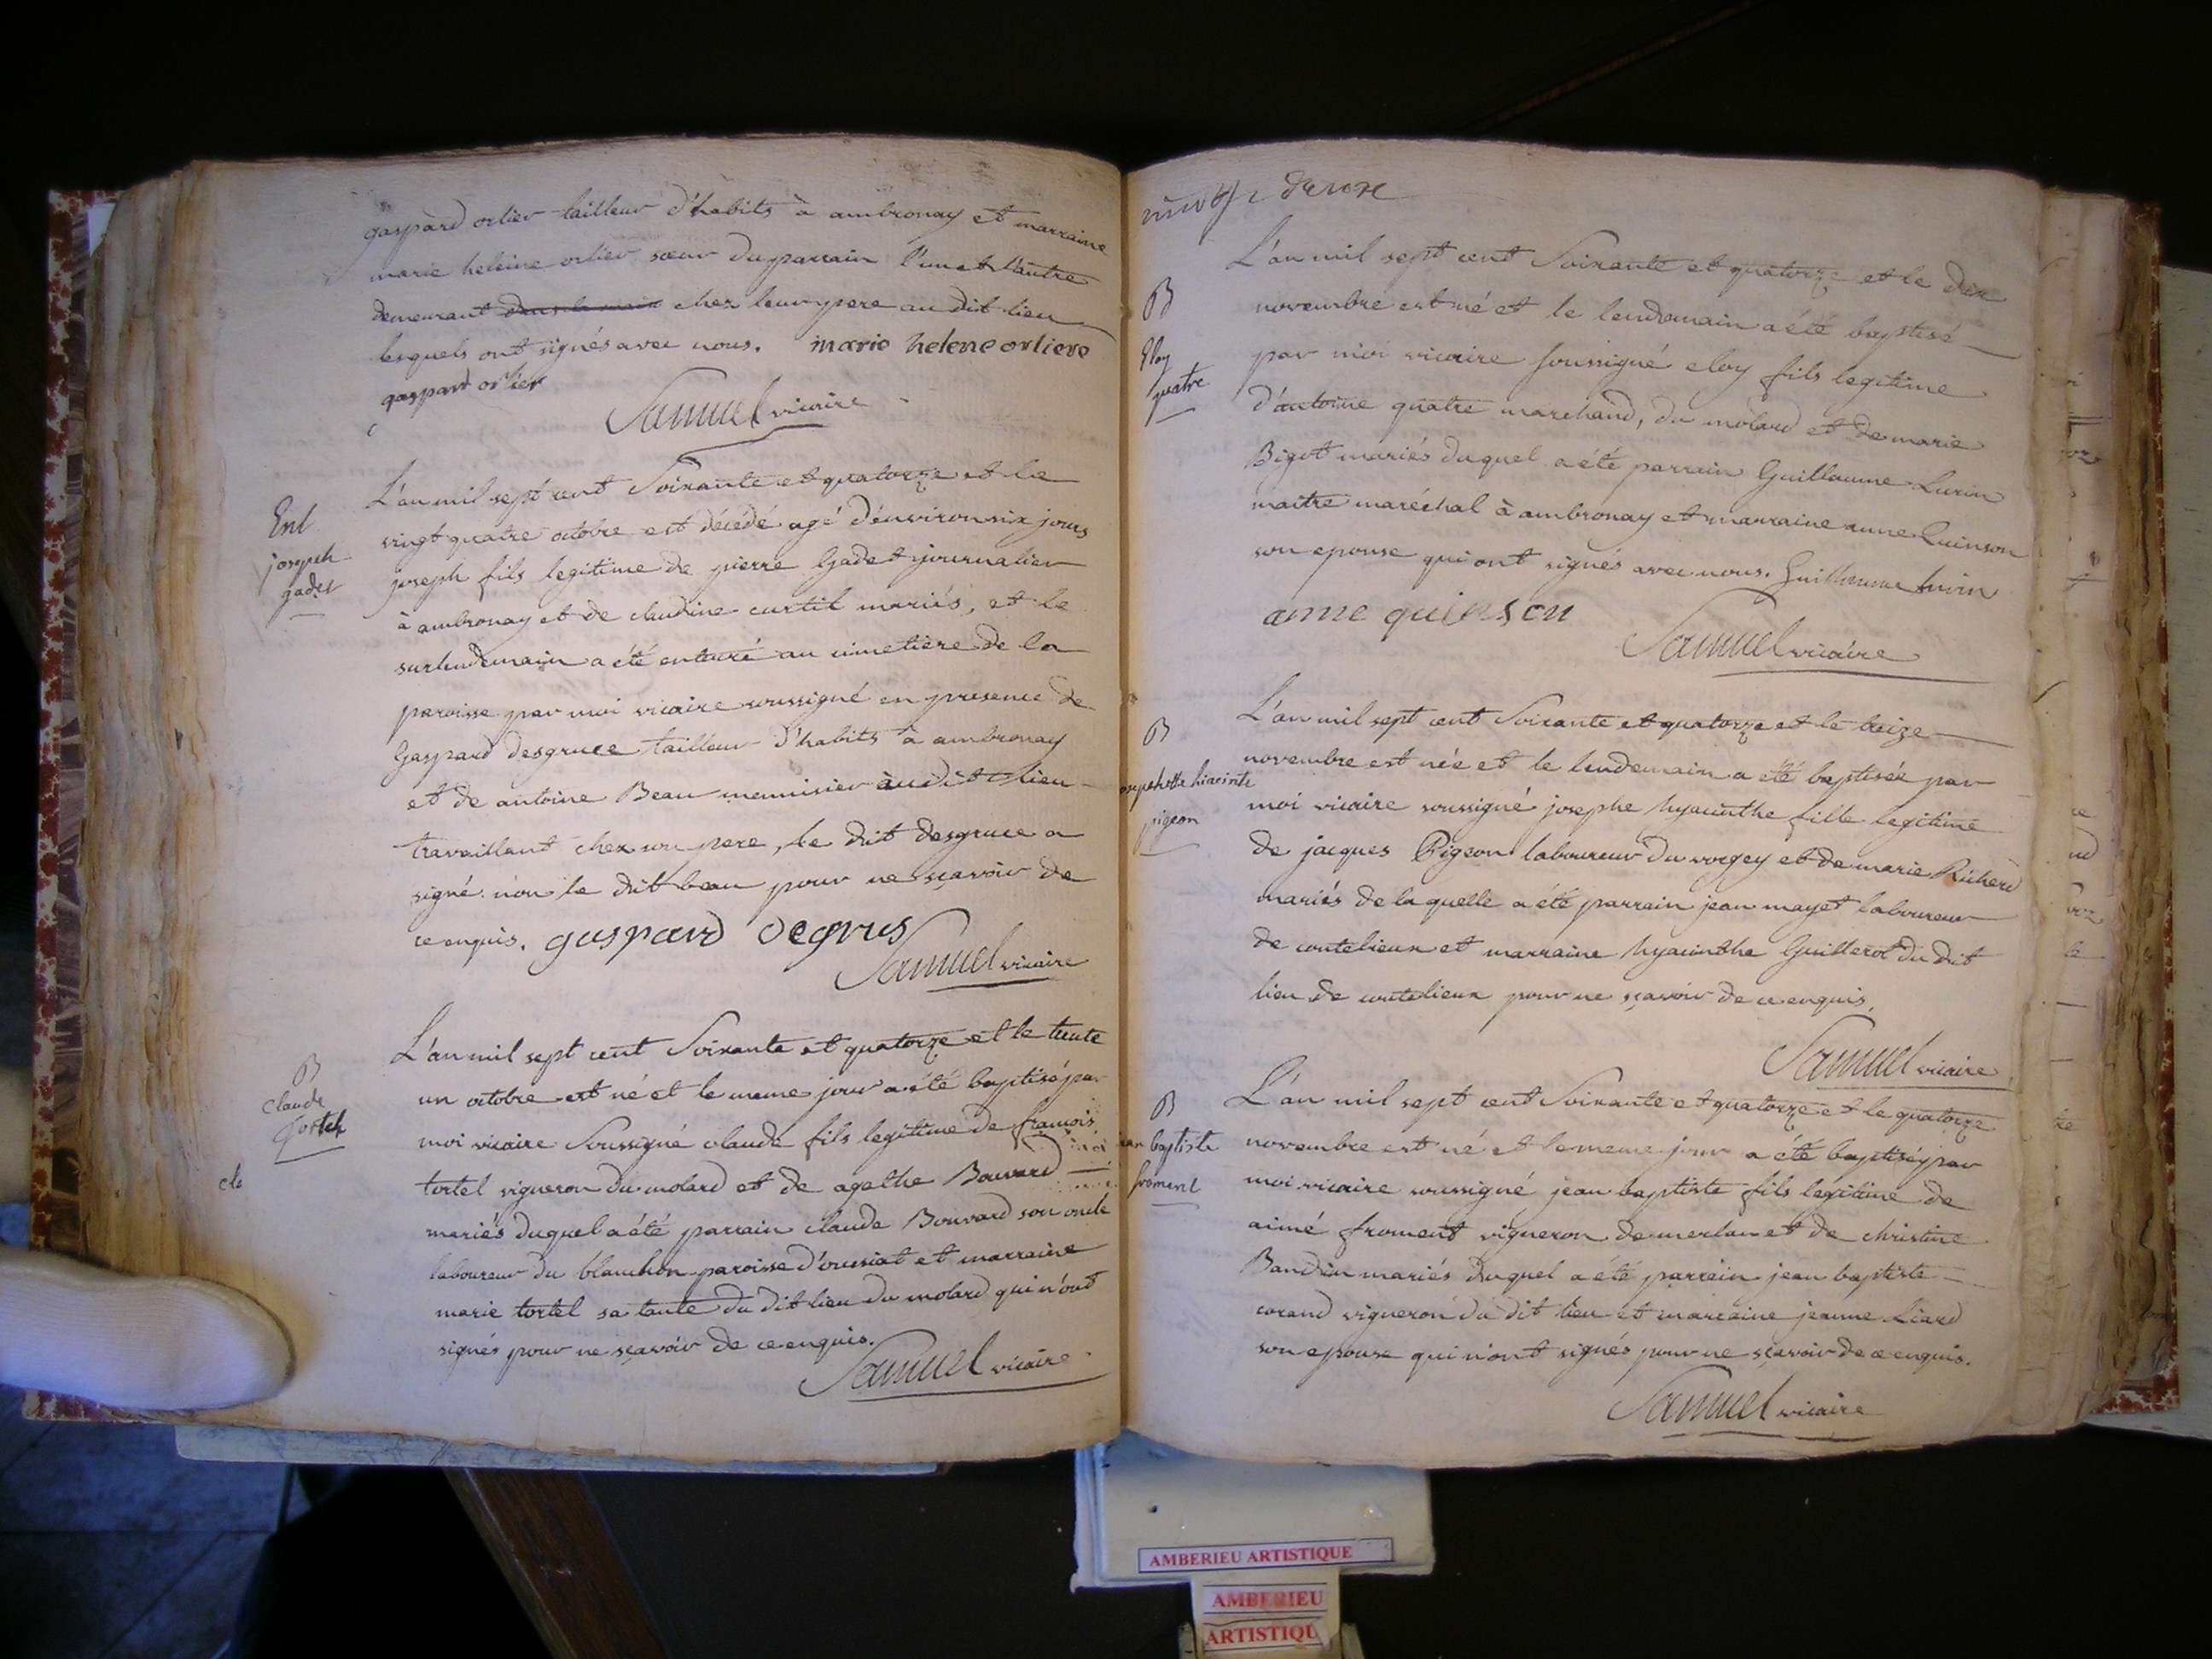 gaspard orlier tailleur d'habits à ambronay et marraine
marie heleine orlier sœur du parrain l'un et l'autre
demeurant chez leur pere au dit lieu
lesquels ont signés avec nous. marie helene orliere
gaspard orlier
Samuel vicaire
Ent
joseph
gadet
L'an mil sept cent Soixante et quatorze et le
vingt quatre octobre est décédé agé d'environ six jours
joseph fils legitime de pierre Gadet journalier
à ambronay et de claudine curtil mariés, et le
surlendemain a été enterré au cimetiere de la
paroisse par moi vicaire soussigné en presence de
Gaspard desgruce tailleur d'habits à ambronay
et de antoine Beau menuisier au dit lieu
travaillant chez son pere, le dit desgruce a
signé non le dit beau pour ne sçavoir de
ce enquis. gaspard degrus
Samuel vicaire
B
claude
tortel
L'an mil sept cent Soixante et quatorze et le trente
un octobre est né et le meme jour a été baptisé par
moi vicaire Soussigné claude fils legitime de françois
tortel vigneron du molard et de agathe Bouvard
mariés duquel a été parrain claude Bouvard son oncle
laboureur du blanchon paroisse d'oussiat et marraine
marie tortel sa tante du dit lieu du molard qui n'ont
signés pour ne sçavoir de ce enquis.
Samuel vicaire
cle
deuze
B
Eloy
quatre
L'an mil sept cent Soixante et quatorze et le dix
novembre est né et le lendemain a été baptisé
par moi vicaire soussigné eloy fils legitime
d'antoine quatre marchand, du molard et de marie
Bigot mariés duquel a été parrain Guillaume Lurin
maitre maréchal à ambronay et marraine anne Quinson
son epouse qui ont signés avec nous. Guillaume lurin
anne quinson
Samuel vicaire
B
josephette hiacinte
pigeon
L'an mil sept cent Soixante et quatorze et le treize
novembre est née et le lendemain a été baptisée par
moi vicaire soussigné josephe hyacinthe fille legitime
de jacques Pigeon laboureur du vorgey et de marie Richerd
mariés de laquelle a été parrain jean mayet laboureur
de coutelieux et marraine hyacinthe Guillerot du dit
lieu de coutelieux pour ne sçavoir de ce enquis.
Samuel vicaire
B
jean baptiste
froment
L'an mil sept cent Soixante et quatorze et le quatorze
novembre est né et le meme jour a été baptisé par
moi vicaire soussigné jean baptiste fils légitime de
aimé froment vigneron de merlan et de christine
Baudin mariés duquel a été parrain jean baptiste
corand vigneron du dit lieu et marraine jeanne Liard
son epouse qui n'ont signés pour ne sçavoir de ce enquis.
Samuel vicaire
AMBERIEU ARTISTIQUE
AMBERIEU
ARTISTIQU